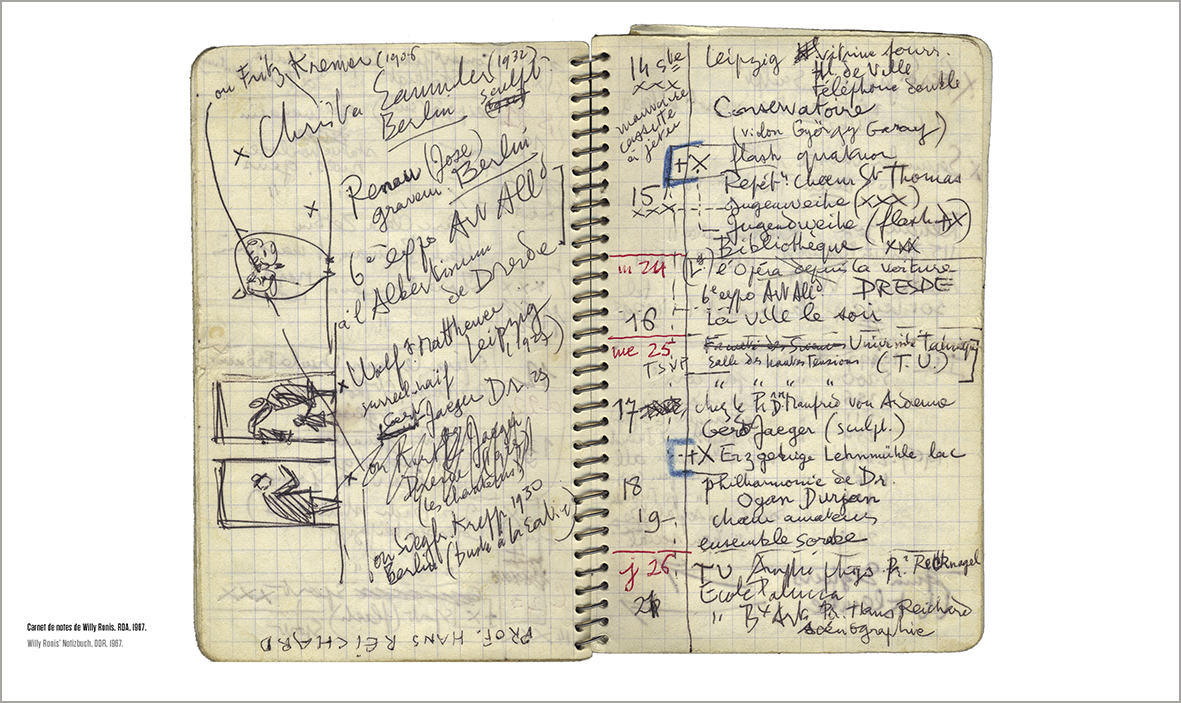 ou Fritz Kremer (1906
Christa Saunder (1932)
Berlin sculpt.
Renau (José)
graveur. Berlin
6e expo Art Alld
à l'Albertinum
de Dresde
Wolfg Mattheuer
Leipzig
(1927)
surréel naïf
Gerd Jaeger Dr. 29
ou Kurt Jaeger
Dresde
(les chanteurs)
ou Siegfr. Krepp. 1930
Berlin (buste à la
PROF. HANS REICHARD
14 ste
xxx
mauvaise
cassette
à jeter
Leipzig vitrine fours.
Ht. de Ville
téléphone double
Conservatoire
(violon György Garay)
+X flash quatuor
Répétn chœur St Thomas
15
xxx
Jugenweihe (xxx)
Jugendweihe (flash +X)
Bibliothèque xxx
m 24
(Lg) l'Opéra depuis la voiture
6e expo Art Alld DRESDE
16
La ville le soir
me 25
TSVP
Université Technique
Salle des hautes tensions (T.U.)
17
" " " "
chez le Pr Dr Manfred von Ardenne
Gerd Jaeger (sculpt.)
-+X Erzgebirge Lehnmühle lac
18
philharmonie de Dr.
Ogan Durjan
19
chœur amateurs
ensemble sorabe
j 26
TU Amphi phys Pr. Recknagel
Ecole Palucca
21
" Bx Arts Pr. Hans Reichard
scénographie
Carnet de notes de Willy Ronis, RDA, 1967.
Willy Ronis' Notizbuch, DDR, 1967.